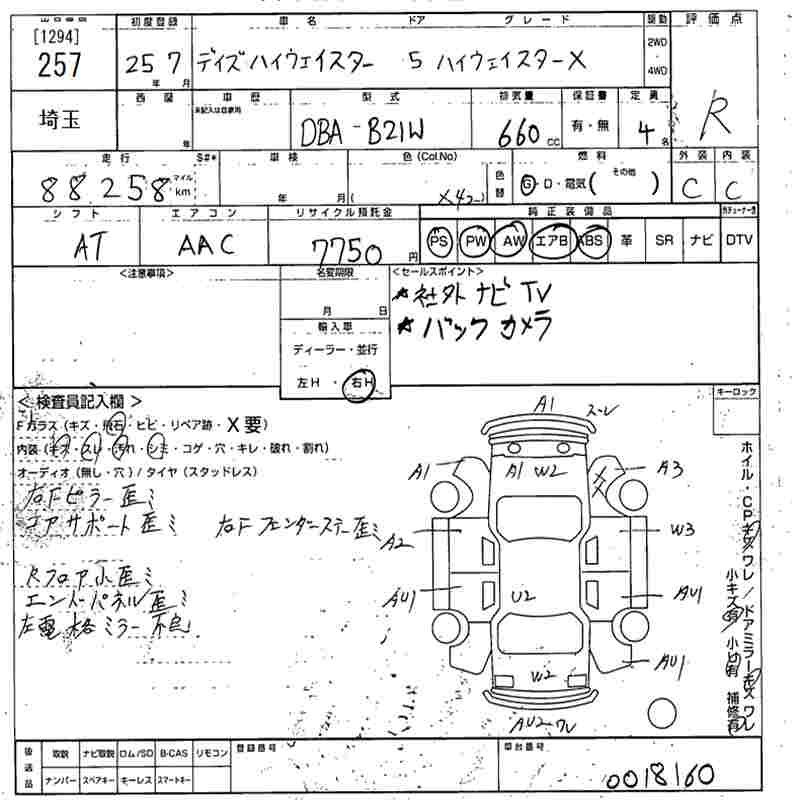 [1294] 初度登録 車名 ドア グレード 駆動 評価点
257 25年 7月 デイズ ハイウェイスター 5 ハイウェイスターX 2WD・4WD
埼玉 西暦 年 車歴 未記入は自家用 型式 排気量 保証書 定員 R
DBA-B21W 660cc 有・無 4名
走行 S#* 車検 色(Col.No) 色替 燃料 外装 内装
88258 マイル km 年 月( X42 ) G・D・電気( その他 ) C C
シフト エアコン リサイクル預託金 純正装備品
AT AAC 7750円 PS PW AW エアB ABS 革 SR ナビ DTV
<注意事項> 名変期限 <セールスポイント>
月 日 ★社外ナビTV
輸入車 ★バックカメラ
ディーラー・並行
左H・右H
<検査員記入欄> キーロック
Fガラス(キズ・飛石・ヒビ・リペア跡・X要)
内装(キズ・スレ・汚れ・シミ・コゲ・穴・キレ・破れ・割れ)
オーディオ(無し・穴)/タイヤ(スタッドレス)
右Fピラー歪ミ
コアサポート歪ミ 右Fフェンダーステー歪ミ
Rフロア小歪ミ
エンドパネル歪ミ
左電格ミラー不良
A1 スレ
A1 A1 W2 A3
XX
A2 W3
AU1 U2 AU1
W2 AU1
AU2ワレ
ホイル・CPキズワレ/ドアミラーキズワレ
小キズ有 小凹有 補修有
後送品 取説 ナビ取説 ロム/SD B-CAS リモコン 登録番号 車台番号
ナンバー スペアキー キーレス スマートキー 0018160